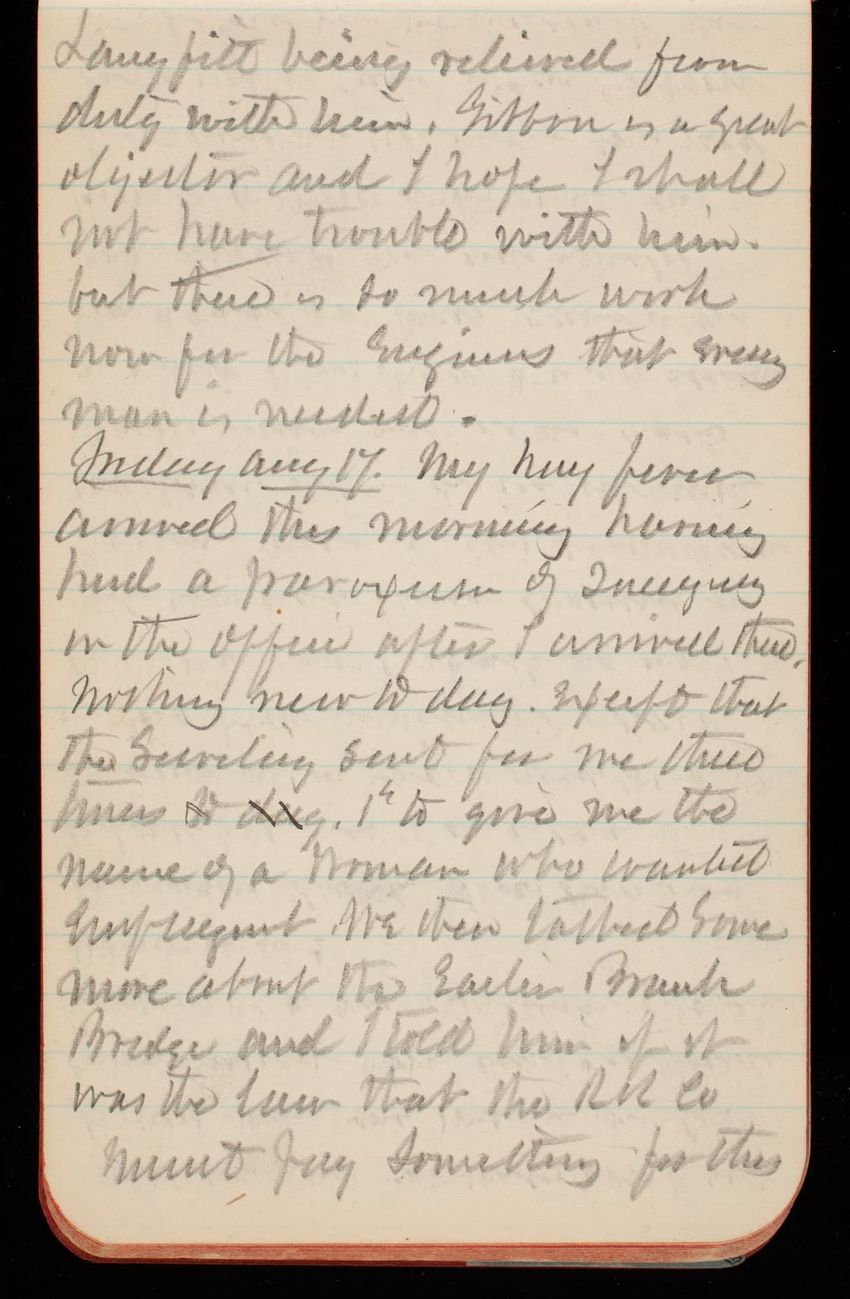 Langfitt being relieved from
duty with him. Gibbon is a great
objector and I hope I shall
not have trouble with him.
but there is so much work
now for the Engineers that every
man is needed.
Friday Aug 17. My hay fever
arrived this morning having
had a paroxysm of sneezing
in the office after I arrived there.
Nothing new to day. Except that
the Secretary sent for me three
times to day. 1st to give me the
name of a Woman who wanted
Employment We then talked some
more about the Eastern Branch
Bridge and I told him if it
was the law that the RR Co
must pay something for this